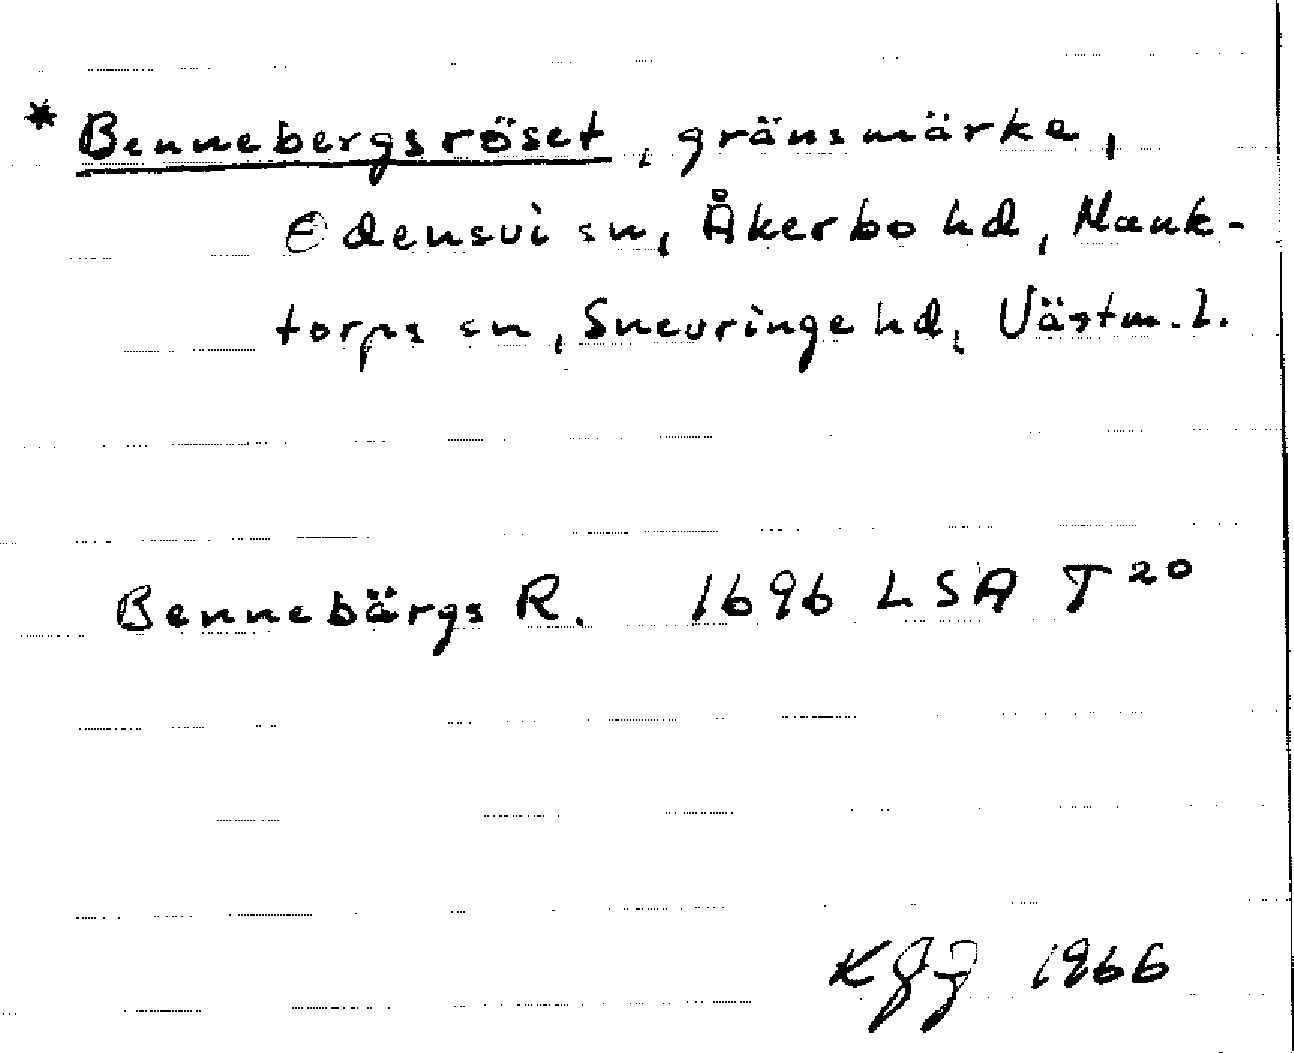 * Bennebergsröset, gränsmärke,
Odensvi sn, Åkerbo hd, Munk-
torps sn, Snevringe hd, Västm. l.
Bennebärgs R. 1696 LSA T 20
1966